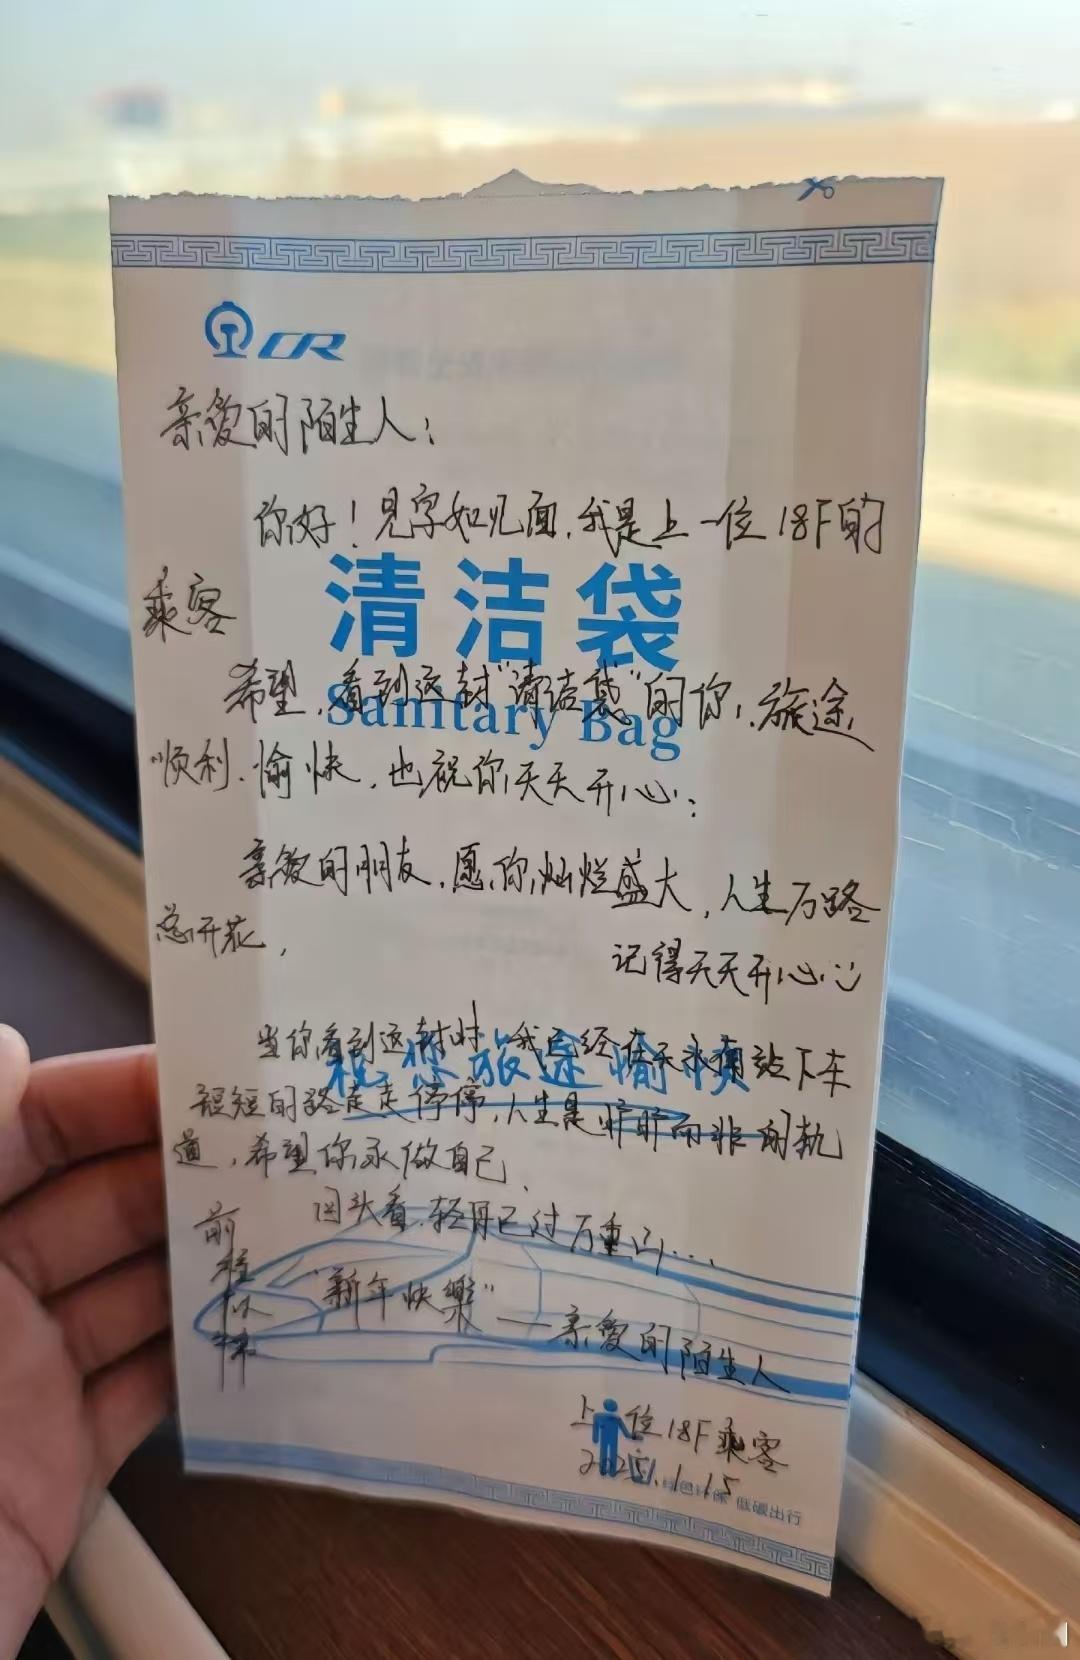 CR
亲爱的陌生人：
你好！见字如见面，我是上一位18F的
清洁袋
乘客
希望，看到这封"清洁袋"的你，旅途
Sanitary Bag
顺利、愉快，也祝你天天开心；
亲爱的朋友，愿你灿烂盛大，人生万路
总开花，
记得天天开心
当你看到这封时，我已经在天水南站下车
祝您旅途愉快
短短的路走走停停，人生是旷野而非的轨
道，希望你永做自己、
回头看，轻舟已过万重山…
前程似锦
"新年快樂"
——亲爱的陌生人
上一位18F乘客
2025.1.15
低碳出行